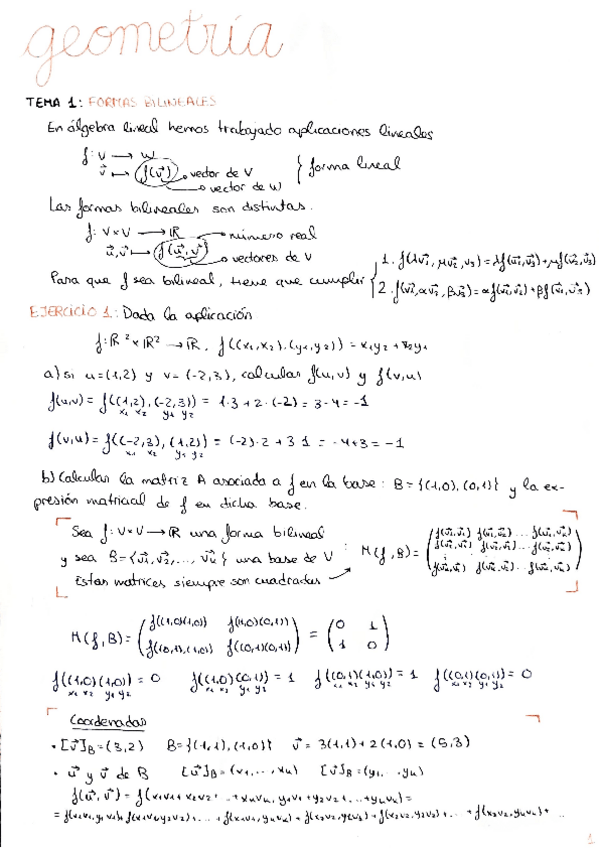 geometría
TEMA 1: FORMAS BILINEALES
En álgebra lineal hemos trabajado aplicaciones lineales
f: V → W
v⃗ → f(v⃗) vector de V } forma lineal
vector de W
Las formas bilineales son distintas.
f: V×V → ℝ número real
u⃗,v⃗ → f(u⃗,v⃗) vectores de V
Para que f sea bilineal, tiene que cumplir { 1. f(λv⃗1, μv⃗2, v3) = λf(v⃗1,v⃗3)+μf(v⃗2,v⃗3)
2. f(v⃗1,αv⃗2, βv⃗3) = αf(v⃗1,v⃗2)+βf(v⃗1,v⃗3)
EJERCICIO 1: Dada la aplicación
f: ℝ² × ℝ² → ℝ, f((x1,x2),(y1,y2)) = x1y2 + x2y1
a) si u=(1,2) y v=(-2,3), calcular f(u,v) y f(v,u)
f(u,v) = f((1,2),(-2,3)) = 1·3 + 2·(-2) = 3-4 = -1
x1 x2 y1 y2
f(v,u) = f((-2,3),(1,2)) = (-2)·2 + 3·1 = -4+3 = -1
x1 x2 y1 y2
b) Calcular la matriz A asociada a f en la base: B={(1,0),(0,1)} y la ex-
presión matricial de f en dicha base.
Sea f: V×V → ℝ una forma bilineal
y sea B={v⃗1,v⃗2,..., v⃗n} una base de V : M(f,B) = ( f(v⃗1,v⃗1) f(v⃗1,v⃗2) ... f(v⃗1,v⃗n)
f(v⃗2,v⃗1) f(v⃗2,v⃗2) ... f(v⃗2,v⃗n)
f(v⃗n,v⃗1) f(v⃗n,v⃗2) ... f(v⃗n,v⃗n) )
Estas matrices siempre son cuadradas
M(f,B) = ( f((1,0)(1,0)) f((1,0)(0,1)) ) = ( 0 1 )
( f((0,1),(1,0)) f((0,1)(0,1)) ) ( 1 0 )
f((1,0)(1,0)) = 0 f((1,0)(0,1)) = 1 f((0,1)(1,0)) = 1 f((0,1)(0,1)) = 0
x1 x2 y1 y2 x1 x2 y1 y2 x1 x2 y1 y2 x1 x2 y1 y2
Coordenadas
• [v⃗]B=(3,2) B={(1,1),(1,0)} v⃗ = 3(1,1)+2(1,0) = (5,3)
• u⃗ y v⃗ de B [u⃗]B=(x1,..., xn) [v⃗]B=(y1,...,yn)
f(u⃗,v⃗) = f(x1v1+x2v2+...+xnvn, y1v1+y2v2+...+ynvn) =
1